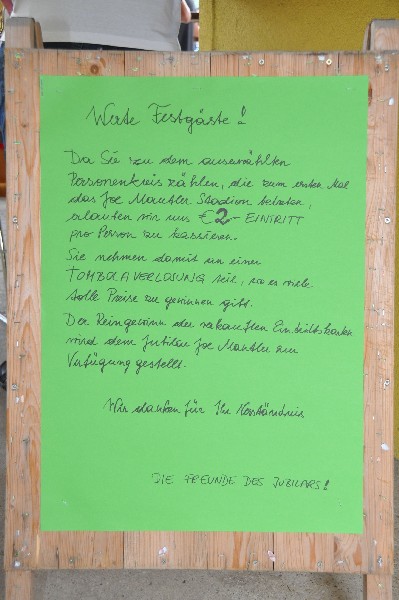 Werte Festgäste!
Da Sie zu dem auserwählten
Personenkreis zählen, die zum ersten Mal
das Joe Mantler Stadion betreten,
erlauben wir uns €2,- EINTRITT
pro Person zu kassieren.
Sie nehmen damit an einer
TOMBOLAVERLOSUNG teil, wo es viele
tolle Preise zu gewinnen gibt.
Der Reingewinn der verkauften Eintrittskarten
wird dem Jubilar Joe Mantler zur
Verfügung gestellt.
Wir danken für Ihr Verständnis
DIE FREUNDE DES JUBILARS!